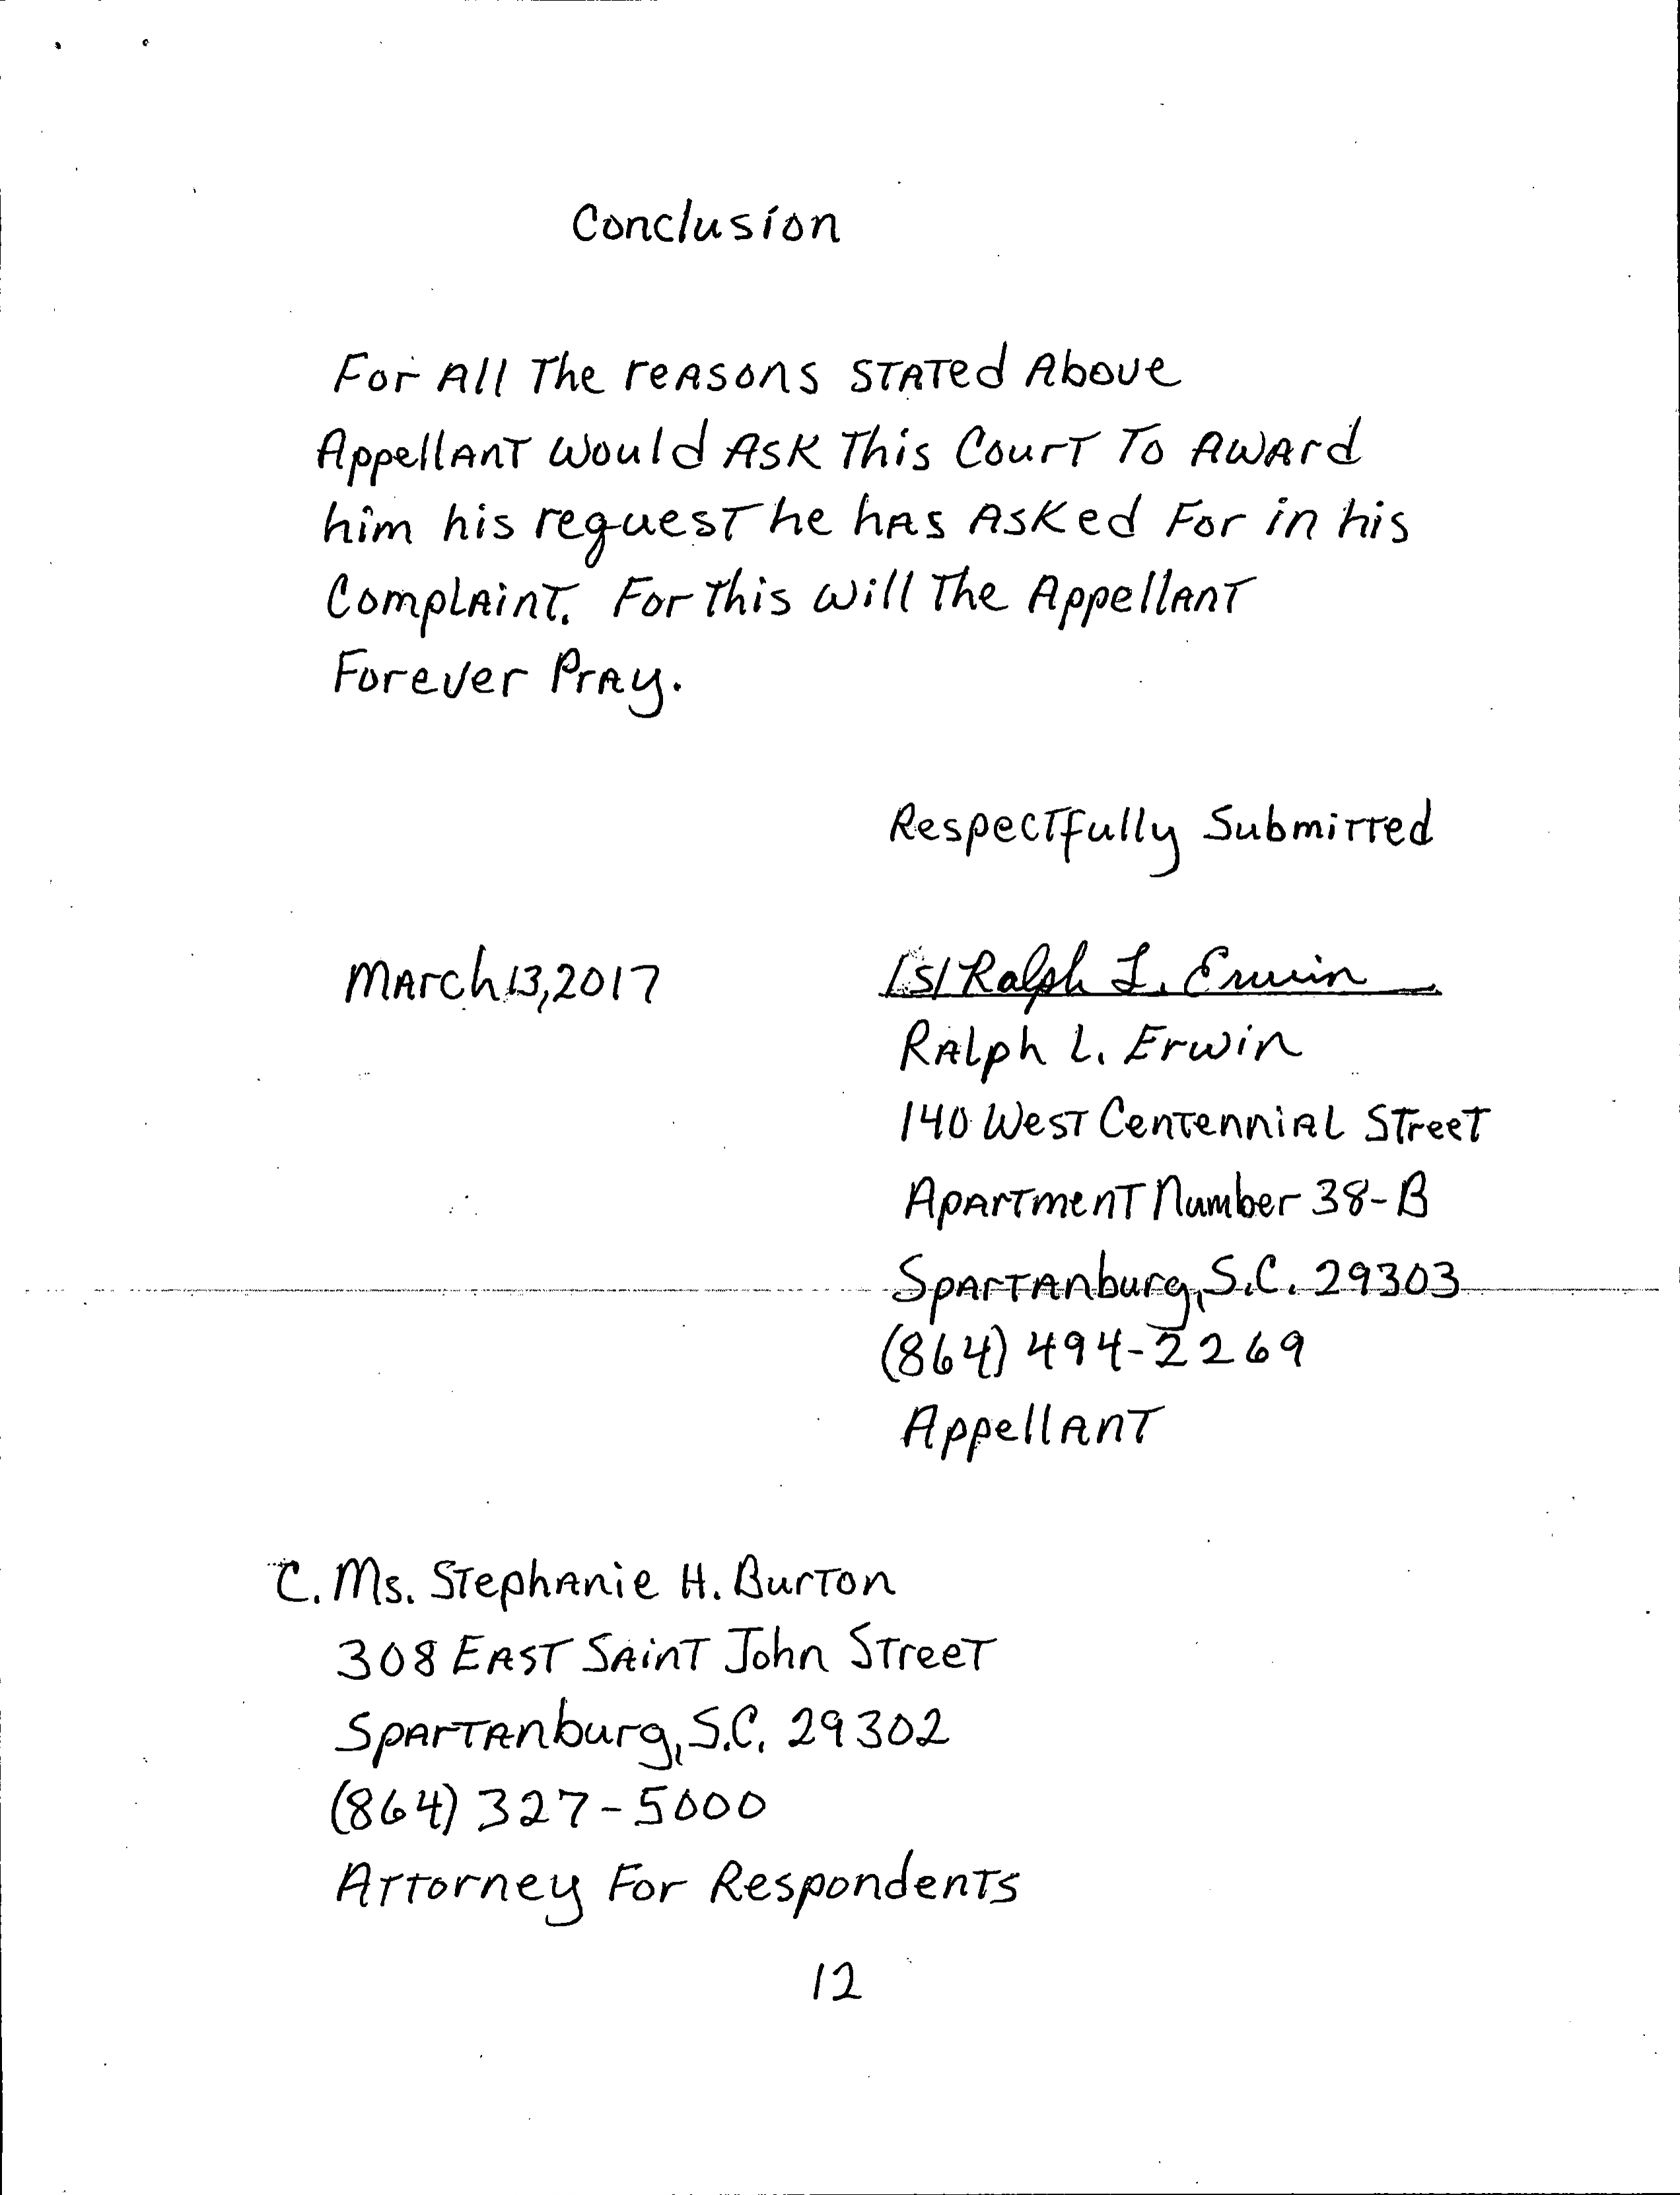 Conclusion
For All The reasons Stated Above
Appellant Would Ask This Court To Award
him his request he has Asked For in his
Complaint. For This Will The Appellant
Forever Pray.
Respectfully Submitted
March 13, 2017
/s/ Ralph L. Erwin
Ralph L. Erwin
140 West Centennial Street
Apartment Number 38-B
Spartanburg, S.C. 29303
(864) 494-2269
Appellant
C. Ms. Stephanie H. Burton
308 East Saint John Street
Spartanburg, S.C. 29302
(864) 327-5000
Attorney For Respondents
12